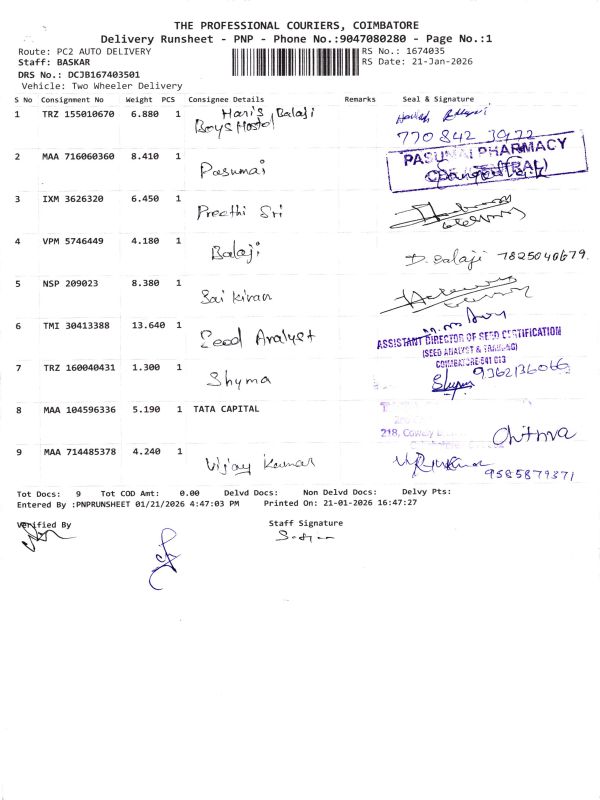 THE PROFESSIONAL COURIERS, COIMBATORE
Delivery Runsheet - PNP - Phone No.:9047080280 - Page No.:1
Route: PC2 AUTO DELIVERY RS No.: 1674035
Staff: BASKAR RS Date: 21-Jan-2026
DRS No.: DCJB167403501
Vehicle: Two Wheeler Delivery
S No Consignment No Weight PCS Consignee Details Remarks Seal & Signature
1 TRZ 155010670 6.880 1 Haris Balaji
Boys Hostel
770 842 3972
2 MAA 716060360 8.410 1 Pasumai PASUMAI PHARMACY
3 IXM 3626320 6.450 1 Preethi Sri
4 VPM 5746449 4.180 1 Balaji D. Balaji 7825040679.
5 NSP 209023 8.380 1 Sai Kiran
6 TMI 30413388 13.640 1 Seed Analyst ASSISTANT DIRECTOR OF SEED CERTIFICATION
(SEED ANALYST & TRAINING)
COIMBATORE-641 013
7 TRZ 160040431 1.300 1 Shyma 9362136066
8 MAA 104596336 5.190 1 TATA CAPITAL
218, Cowley Chitra
9 MAA 714485378 4.240 1 Vijay Kumar
9585879371
Tot Docs: 9 Tot COD Amt: 0.00 Delvd Docs: Non Delvd Docs: Delvy Pts:
Entered By :PNPRUNSHEET 01/21/2026 4:47:03 PM Printed On: 21-01-2026 16:47:27
Verified By Staff Signature